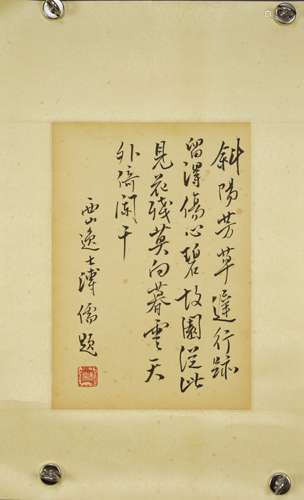 斜陽芳草遲行跡
留得傷心碧故園從此
見花殘莫向暮雲天
外倚闌干
西山逸士溥儒題